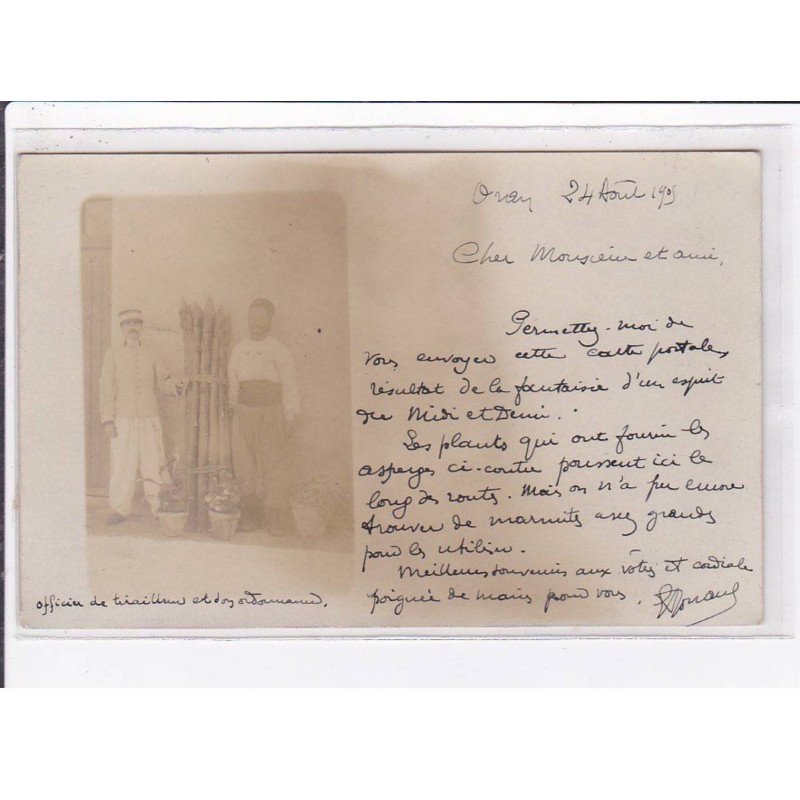 Oran 24 Août 1905
Cher Monsieur et ami,
Permettez-moi de
vous envoyer cette carte postale,
résultat de la fantaisie d'un esprit
du Midi et Demi.
Les plants qui ont fourni les
asperges ci-contre poussent ici le
long des routes. Mais on n'a pu encore
trouver de marmites assez grandes
pour les utiliser.
Meilleurs souvenirs aux vôtres et cordiale
poignée de mains pour vous.
officier de tirailleurs et son ordonnance.